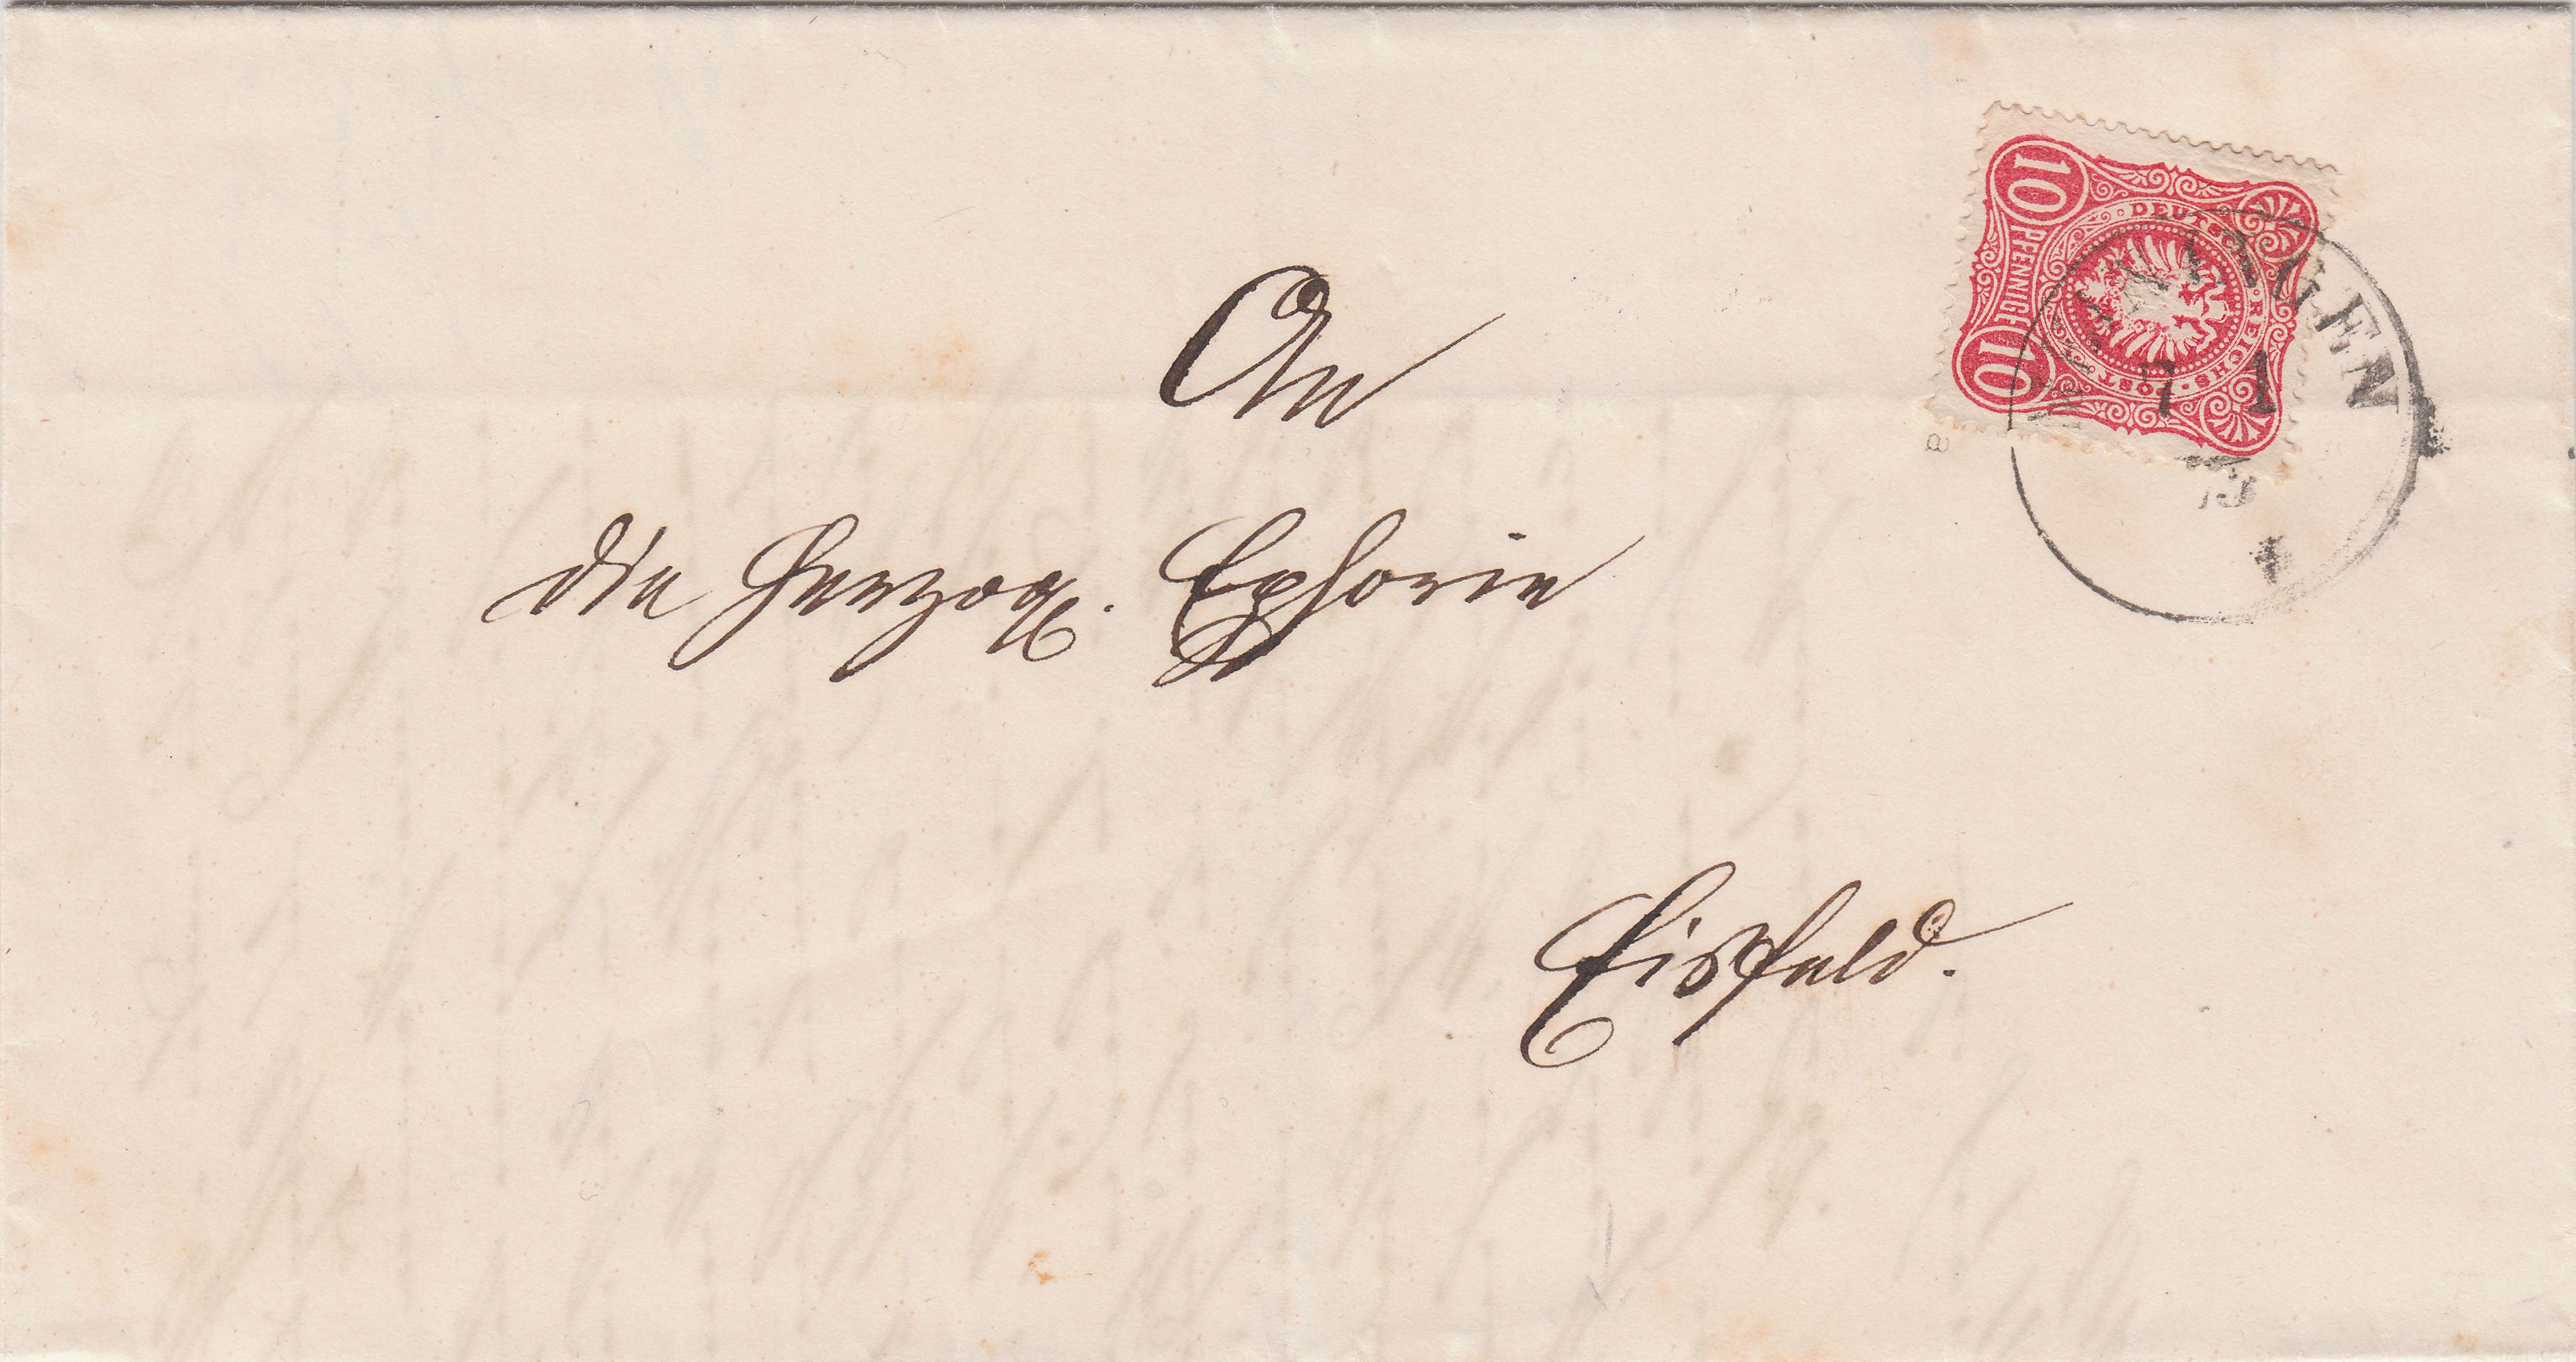 10 PFENNIGE 10
DEUTSCHE REICHS-POST
7 1
An
die Herzogl. Ephorie
Eisfeld.